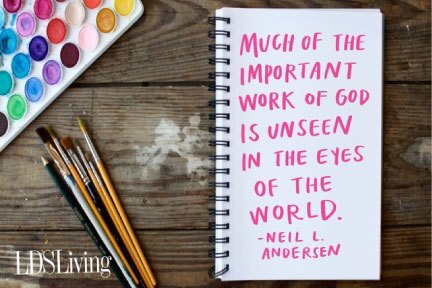 MUCH OF THE
IMPORTANT
WORK OF GOD
IS UNSEEN
IN THE EYES
OF THE
WORLD.
-NEIL L.
ANDERSEN
LDSLiving